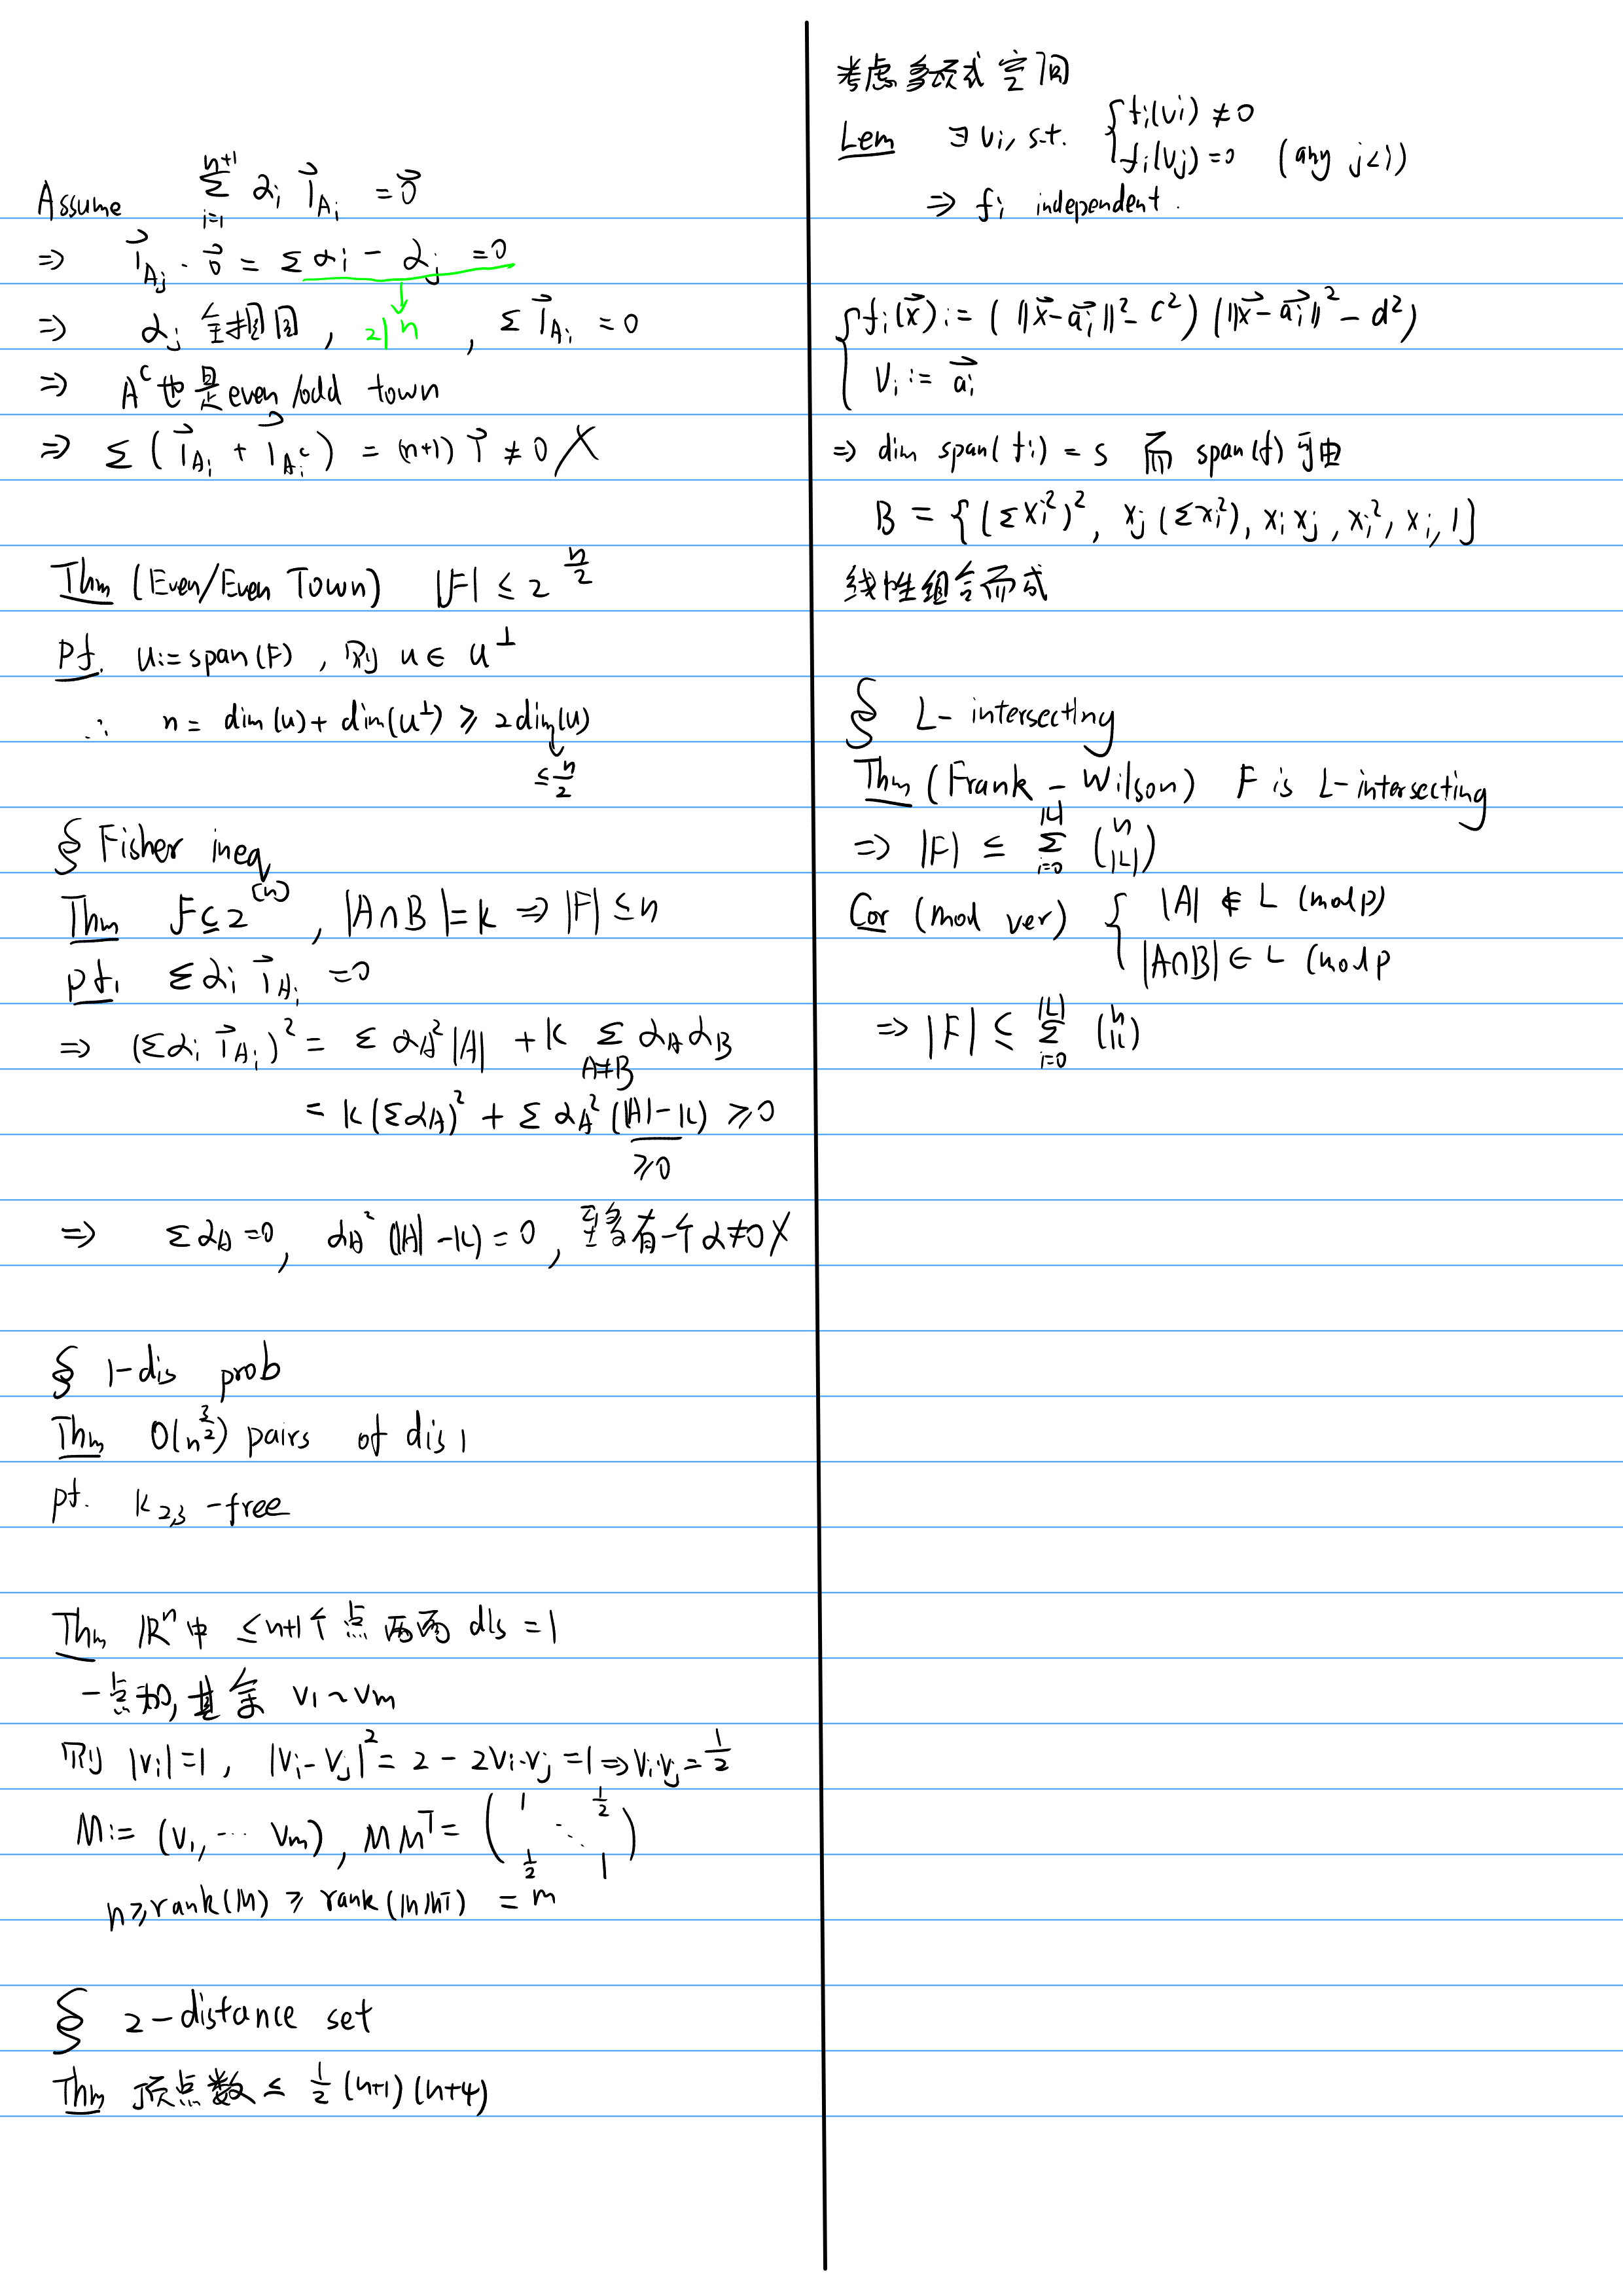 Assume ∑_{i=1}^{n+1} α_i 1⃗_{A_i} = 0⃗
⇒ 1⃗_{A_j} · 0⃗ = ∑α_i - α_j = 0
⇒ α_j 全相同, 2|n, ∑ 1⃗_{A_i} = 0
⇒ A^c 也是 even/odd town
⇒ ∑ (1⃗_{A_i} + 1⃗_{A_i^c}) = (n+1) 1⃗ ≠ 0 X
Thm (Even/Even Town) |F| ≤ 2^{n/2}
Pf. U := span(F), 则 u ∈ u^⊥
∴ n = dim(u) + dim(u^⊥) ≥ 2dim(u)
≤ n/2
§ Fisher ineq
Thm F ⊆ 2^{[n]}, |A∩B| = k ⇒ |F| ≤ n
pf. ∑α_i 1⃗_{A_i} = 0
⇒ (∑α_i 1⃗_{A_i})² = ∑ α_A² |A| + k ∑_{A≠B} α_A α_B
= k(∑α_A)² + ∑ α_A² (|A| - k) ≥ 0
≥ 0
⇒ ∑α_A = 0, α_A² (|A| - k) = 0, 至多有一个 α ≠ 0 X
§ 1-dis prob
Thm O(n^{3/2}) pairs of dis 1
pf. K_{2,3} -free
Thm ℝ^n 中 ≤ n+1 个点两两 dis = 1
一点为0, 其余 v_1 ~ v_m
则 |v_i| = 1, |v_i - v_j|² = 2 - 2v_i·v_j = 1 ⇒ v_i·v_j = 1/2
M := (v_1, ⋯ v_m), M M^T = ( 1 1/2 ⋱ 1/2 1 )
n ≥ rank(M) ≥ rank(MM^T) = m
§ 2-distance set
Thm 顶点数 ≤ 1/2 (n+1)(n+4)
考虑多项式空间
Lem ∃ v_i, s.t. { f_i(v_i) ≠ 0
f_i(v_j) = 0 (any j<i)
⇒ f_i independent.
{ f_i(x⃗) := (‖x⃗ - a⃗_i‖² - c²)(‖x⃗ - a⃗_i‖² - d²)
v_i := a⃗_i
⇒ dim span(f_i) = s 而 span(f) 可由
B = {(∑x_i²)², x_j(∑x_i²), x_i x_j, x_i², x_i, 1}
线性组合而成
§ L-intersecting
Thm (Frank - Wilson) F is L-intersecting
⇒ |F| ≤ ∑_{i=0}^{|L|} (n |L|)
Cor (mod ver) { |A| ∉ L (mod p)
|A∩B| ∈ L (mod p
⇒ |F| ≤ ∑_{i=0}^{|L|} (n |L|)